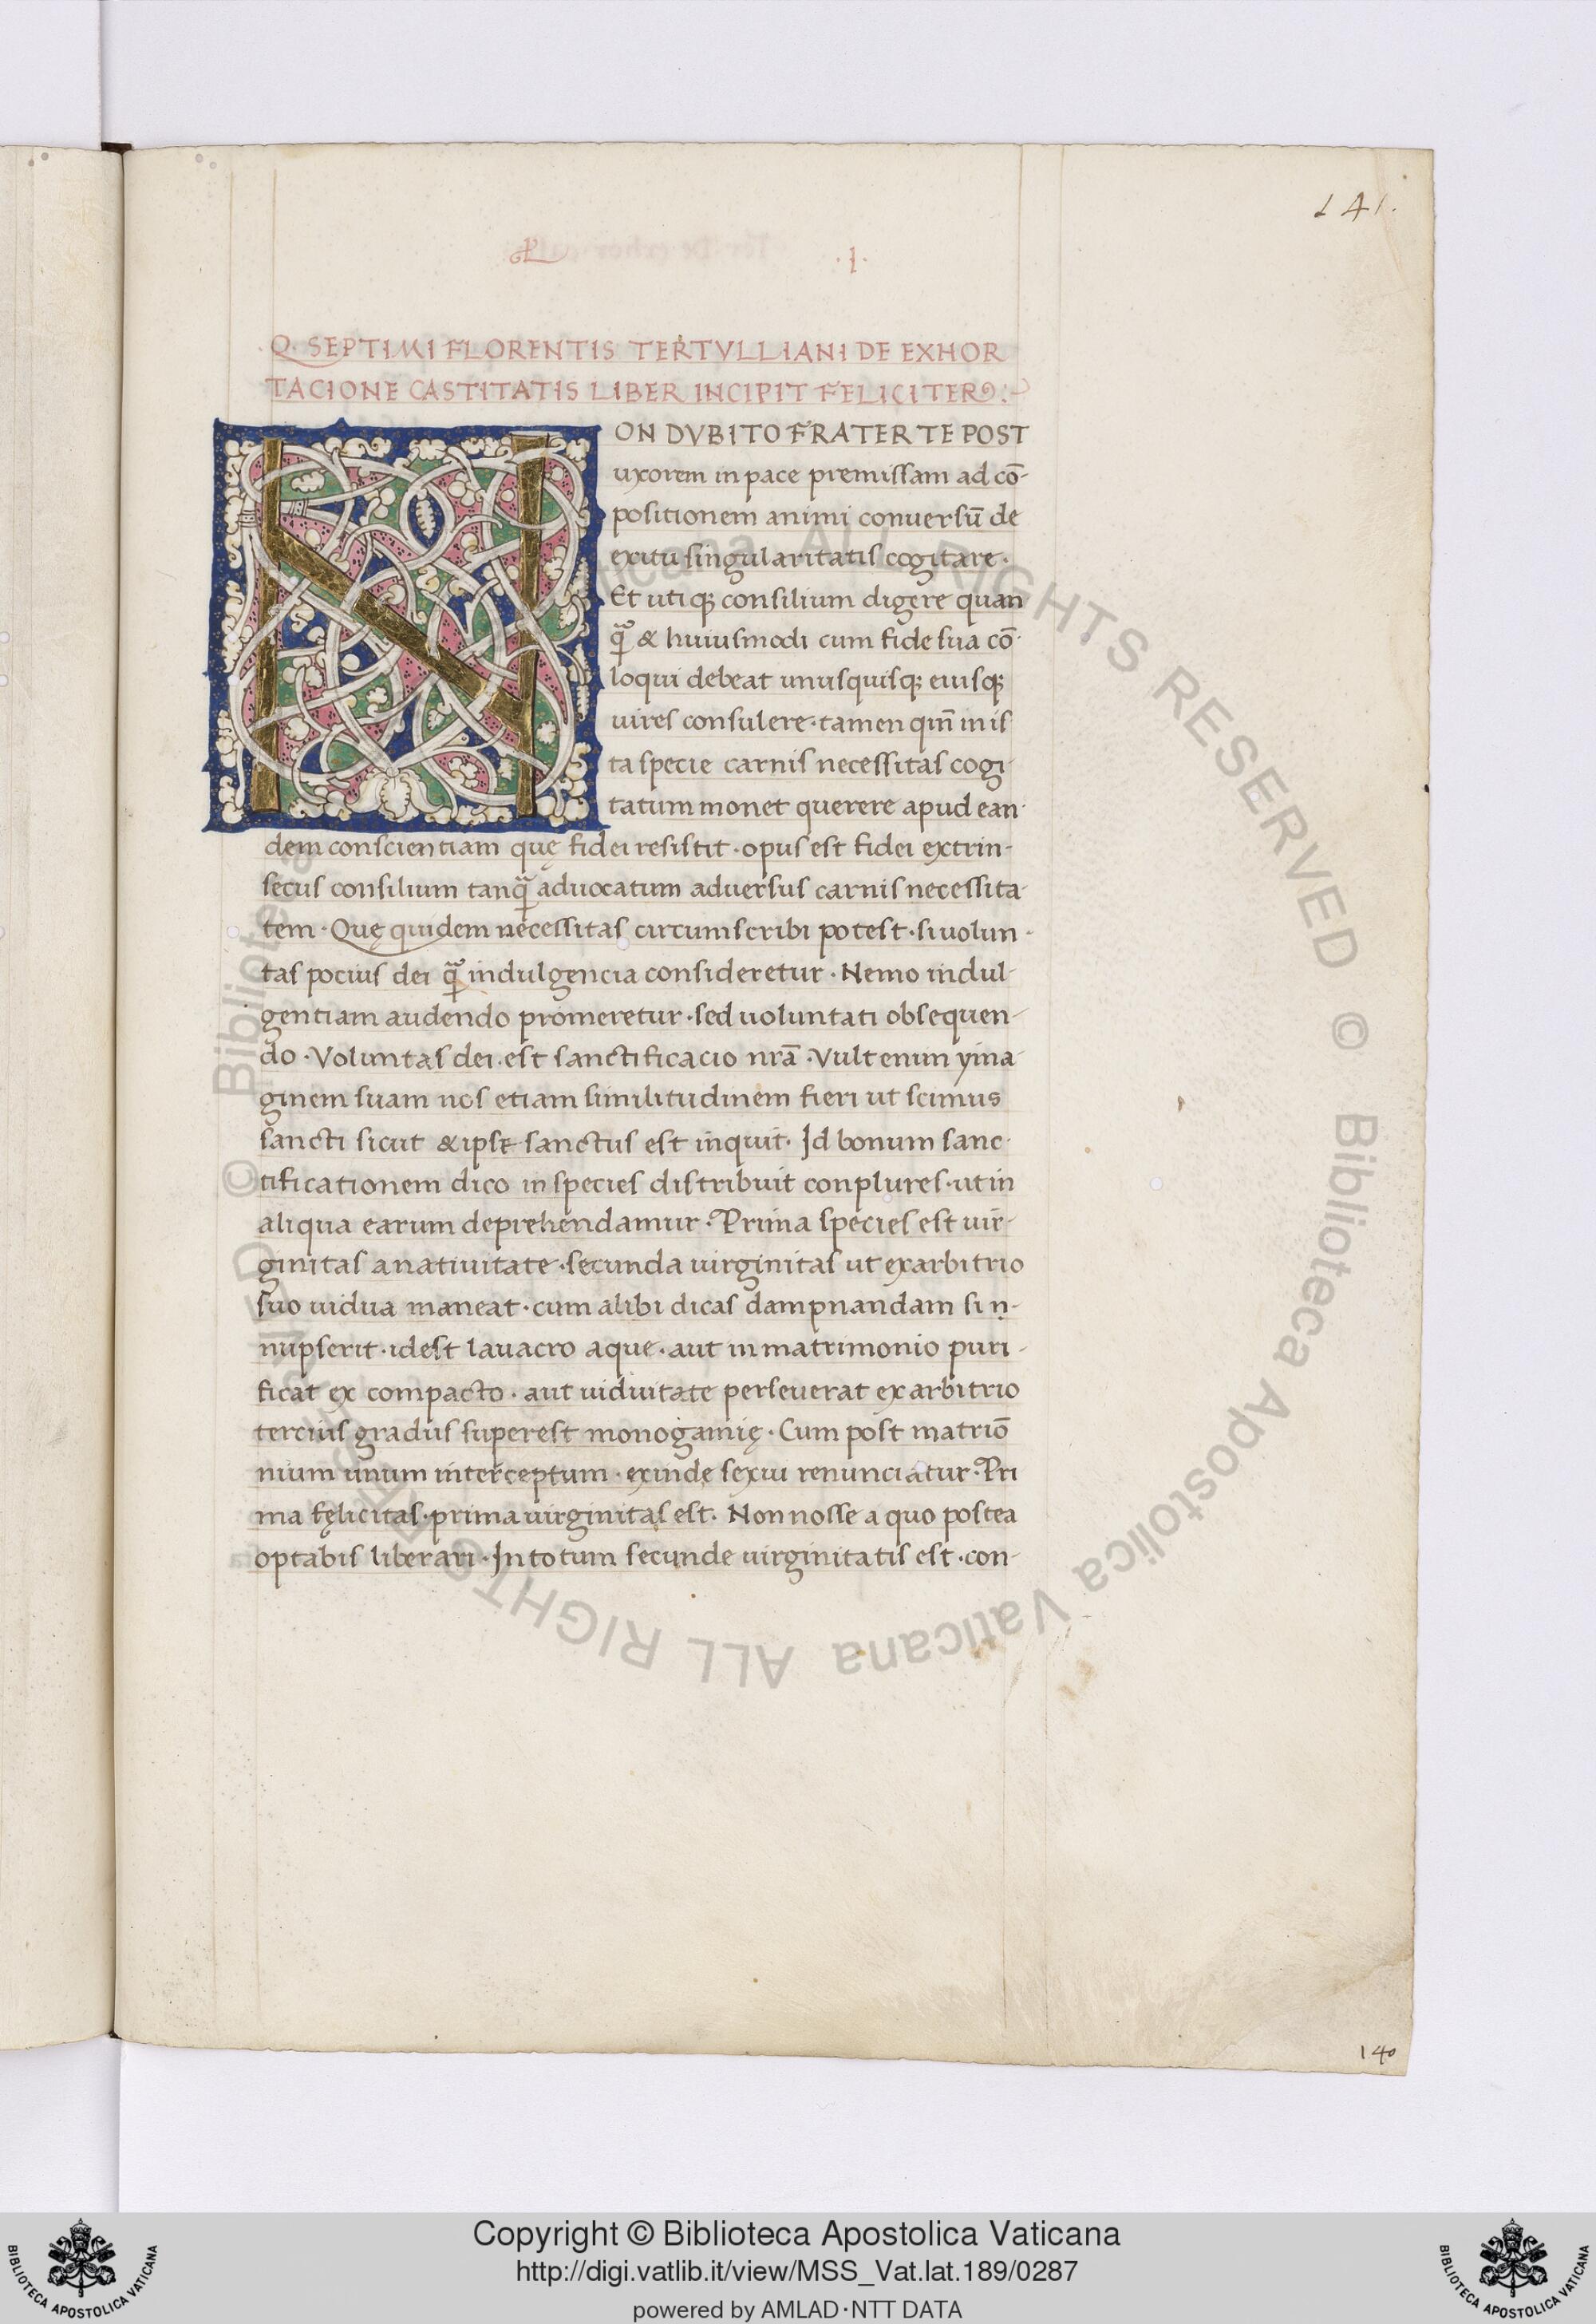 141.
·I·
Q. SEPTIMI FLORENTIS TERTVLLIANI DE EXHOR
TACIONE CASTITATIS LIBER INCIPIT FELICITER
NON DVBITO FRATER TE POST
uxorem in pace premissam ad cō-
positionem animi conuersū de
exitu singularitatis cogitare ·
Et utiqꝫ consilium digere quan
qᷓ & huiusmodi cum fide sua cō-
loqui debeat unusquisqꝫ eiusqꝫ
uires consulere · tamen qm̄ in is
ta specie carnis necessitas cogi-
tatum monet querere apud ean-
dem conscientiam quę fidei resistit · opus est fidei extrin-
secus consilium tanqᷓ aduocatum aduersus carnis necessita-
tem · Quę quidem necessitas circumscribi potest · si uolun-
tas pocius dei qᷓ indulgencia consideretur · Nemo indul-
gentiam audendo promeretur · sed uoluntati obsequen-
do · Voluntas dei · est sanctificacio nrā · Vult enim yma-
ginem suam nos etiam similitudinem fieri ut scimus
sancti sicut & ipse sanctus est inquit · Id bonum sanc-
tificationem dico in species distribuit conplures · ut in
aliqua earum deprehendamur · Prima species est uir-
ginitas a natiuitate · secunda uirginitas ut ex arbitrio
suo uidua maneat · cum alibi dicas dampnandam si n-
nupserit · idest lauacro aque · aut in matrimonio puri-
ficat ex compacto · aut uiduitate perseuerat ex arbitrio
tercius gradus superest monogamię · Cum post matriō
nium unum interceptum · exinde sexui renunciatur · Pri
ma fęlicitas · prima uirginitas est · Non nosse a quo postea
optabis liberari · In totum secunde uirginitatis est · con-
140
© Biblioteca Apostolica Vaticana ALL RIGHTS RESERVED © Biblioteca Apostolica Vaticana ALL RIGHTS RESERVED
Copyright © Biblioteca Apostolica Vaticana
http://digi.vatlib.it/view/MSS_Vat.lat.189/0287
powered by AMLAD·NTT DATA
BIBLIOTECA APOSTOLICA VATICANA
BIBLIOTECA APOSTOLICA VATICANA